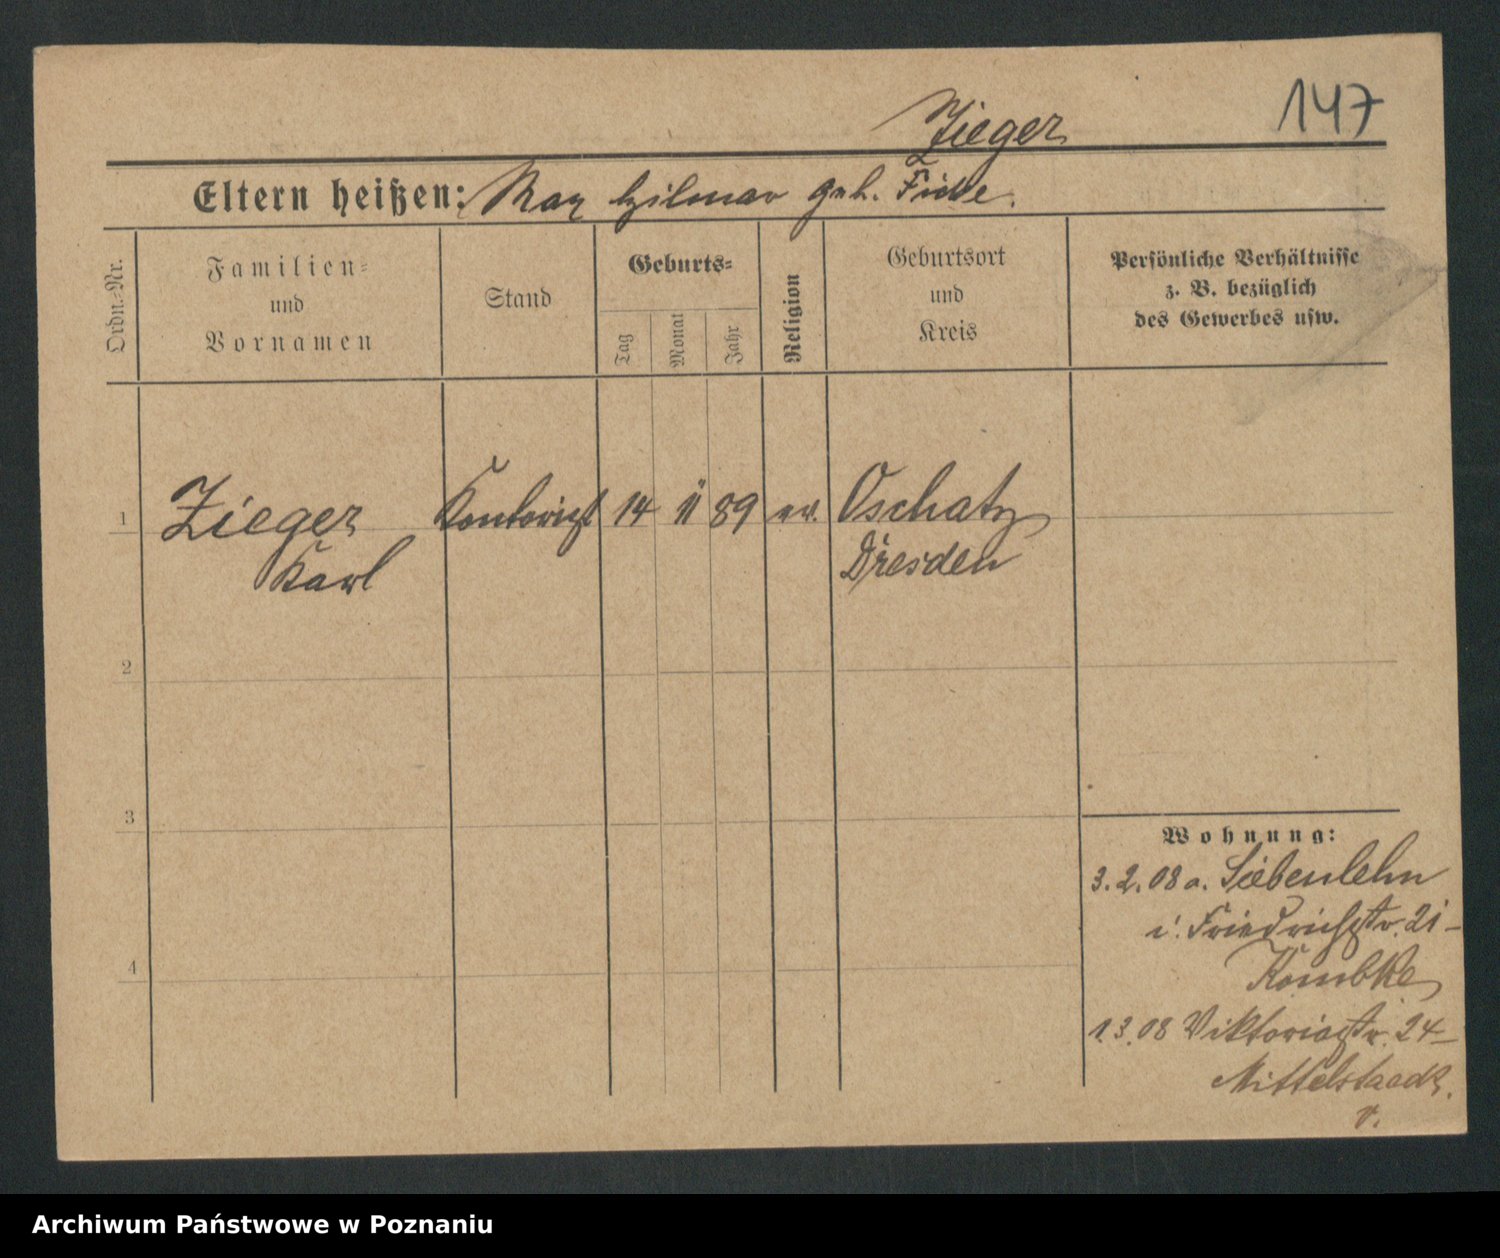 147
Zieger
Eltern heißen: Max Hilmar geb. Fricke.
Ordn.-Nr.
Familien-
und
Vornamen
Stand
Geburts-
Tag
Monat
Jahr
Religion
Geburtsort
und
Kreis
Persönliche Verhältnisse
z. B. bezüglich
des Gewerbes usw.
1 Zieger Kontorist 14 11 89 ev. Oschatz
Karl Dresden
2
3
4
Wohnung:
3.2.08 a. Siebenlehn
i. Friedrichstr. 21-
1.3.08 Viktoriastr. 24-
Mittelstaedt.
v.
Archiwum Państwowe w Poznaniu